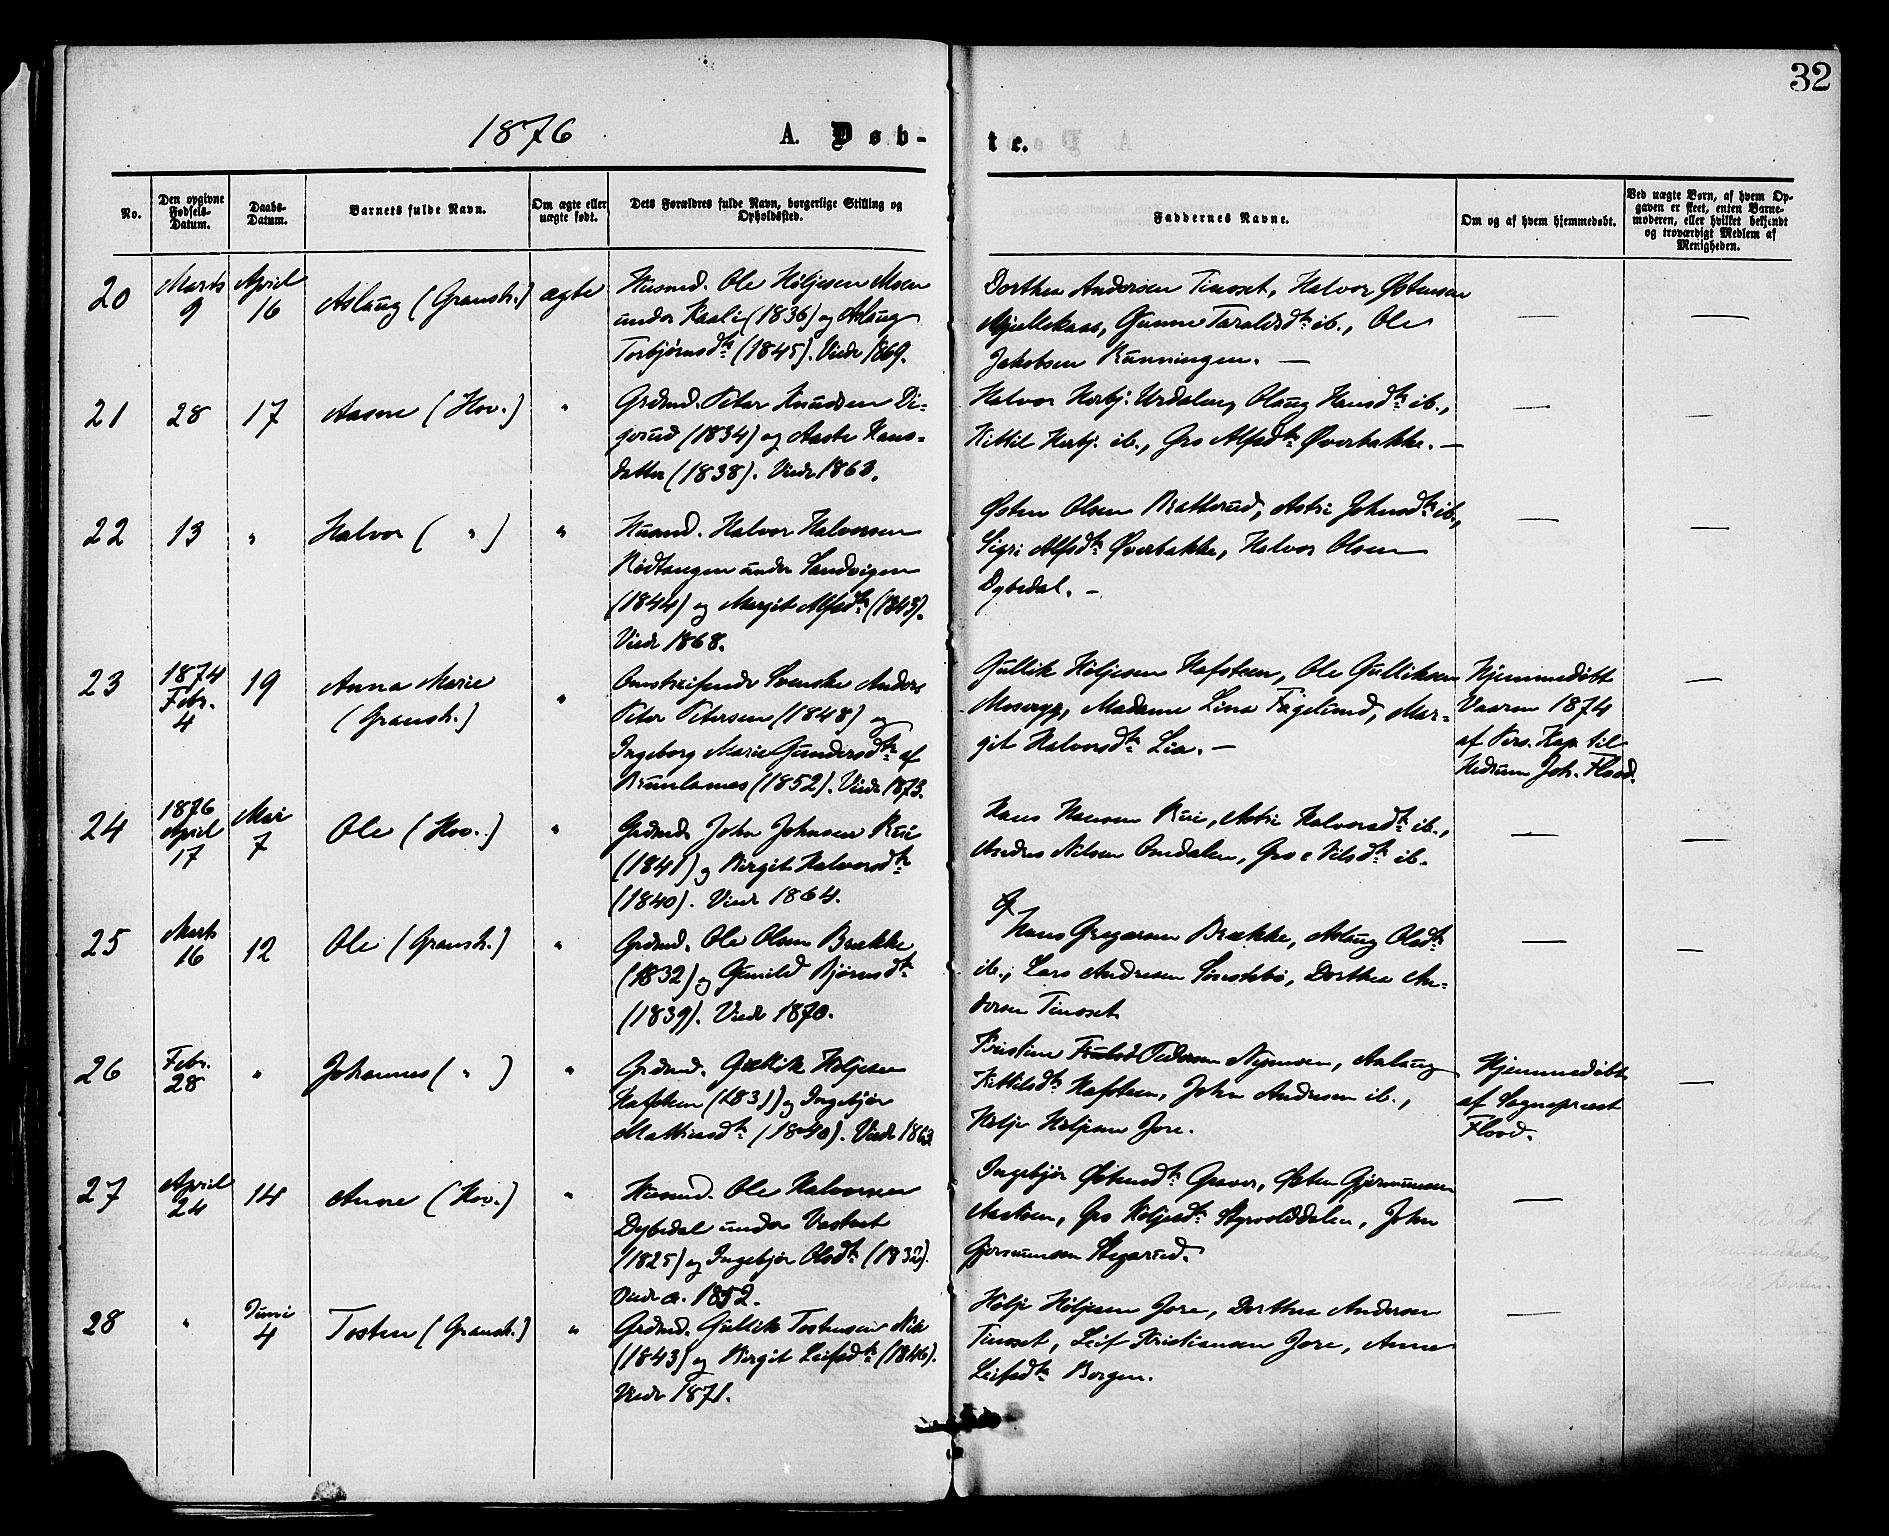 32
1876
A. Døb-
te.
No.
Den opgivne Fødsels-Datum.
Daabs-Datum.
Barnets fulde Navn.
Om ægte eller uægte født.
Dets Forældres fulde Navn, borgerlige Stilling og Opholdssted.
Faddernes Navne.
Om og af hvem hjemmedøbt.
Ved uægte Børn, af hvem Opgaven er skeet, enten Barnemoderen, eller hvilket bekjendt og troværdigt Medlem af Menigheden.
20
Marts 9
April 16
Aslaug (Gransh.)
ægte
Husmd. Ole Høljesen Moen
under Kaali (1836) og Aslaug
Torbjørnsdtr (1845). Viede 1869.
Dorthea Andersen Tinsset, Halvor Østensen
Mjellekaas, Gunne Taraldsdtr ib., Ole
Jakobsen Runningen. —
—
—
21
28
17
Aasne (Hov.)
"
Grdmd. Peter Knudsen Di-
gerud (1834) og Aaste Hans-
datter (1838). Viede 1863.
Halvor Herbj. Urdalen, Olaug Hansdtr ib.,
Kittil Herbj. ib., Gro Alfsdtr Øverbakke. —
—
—
22
13
"
Halvor ( " )
"
Husmd. Halvor Halvorsen
Rødtangen under Sandvigen
(1844) og Margit Alfsdtr (1843).
Viede 1868.
Østen Olsen Bratterud, Astri Johnsdtr ib.,
Sigri Alfsdtr Øverbakke, Halvor Olsen
Dybedal. —
—
—
23
1874 Febr. 4
19
Anna Marie
(Gransh.)
"
Omstreifende Svenske Anders
Peter Petersen (1848) og
Ingeborg Marie Gundersdtr af
Brunlanes (1852). Viede 1873.
Gullik Høljesen Hafsteen, Ole Gulliksen
Moseryg, Madame Lina Fagelund, Mar-
git Halvorsdtr Lia. —
Hjemmedøbt
Vaaren 1874
af Pers. Kap. til
Hedrum Joh. Flood.
—
24
1876 April 17
Mai 7
Ole (Hov.)
"
Grdmd. John Johnsen Rui
(1841) og Birgit Halvorsdtr
(1840). Viede 1864.
Hans Hansen Rui, Astri Halvorsdtr ib.,
Andres Nilsen Omdalen, Gro Nilsdtr ib.
—
—
25
Marts 16
12
Ole (Gransh.)
"
Grdmd. Ole Olsen Brække
(1832) og Gunild Bjørnsdtr
(1839). Viede 1870.
Hans Gregersen Brække, Aslaug Olsdtr
ib., Lars Andresen Sønstebø, Dorthea An-
dersen Tinsset.
—
—
26
Febr. 28
"
Johannes ( " )
"
Grdmd. Gullik Høljesen
Hafsteen (1831) og Ingebjør
Mathisdtr (1840). Viede 1863.
Kristine Pedersen Nymoen, Aslaug
Kittilsdtr Hafsteen, John Andresen ib.,
Helje Heljesen Jore.
Hjemmedøbt
af Sognepræst
Flood.
—
27
April 24
14
Anne (Hov.)
"
Husmd. Ole Halvorsen
Dybedal under Vastvet
(1825) og Ingebjør Olsdtr (1832).
Viede a. 1852.
Ingebjør Østensdtr Graver, Østen Gjermunsen
Aasteen, Gro Høljesdtr Styrvolddalen, John
Gjermunsen Stegarud.
—
28
"
Juni 4
Tosten (Gransh.)
"
Grdmd. Gullik Tostensen Nik
(1843) og Birgit Leifsdtr (1846).
Viede 1871.
Hølje Høljesen Jore, Dorthea Andersen
Tinsset, Leif Kristiansen Jore, Anne
Leifsdtr Borgen.
—